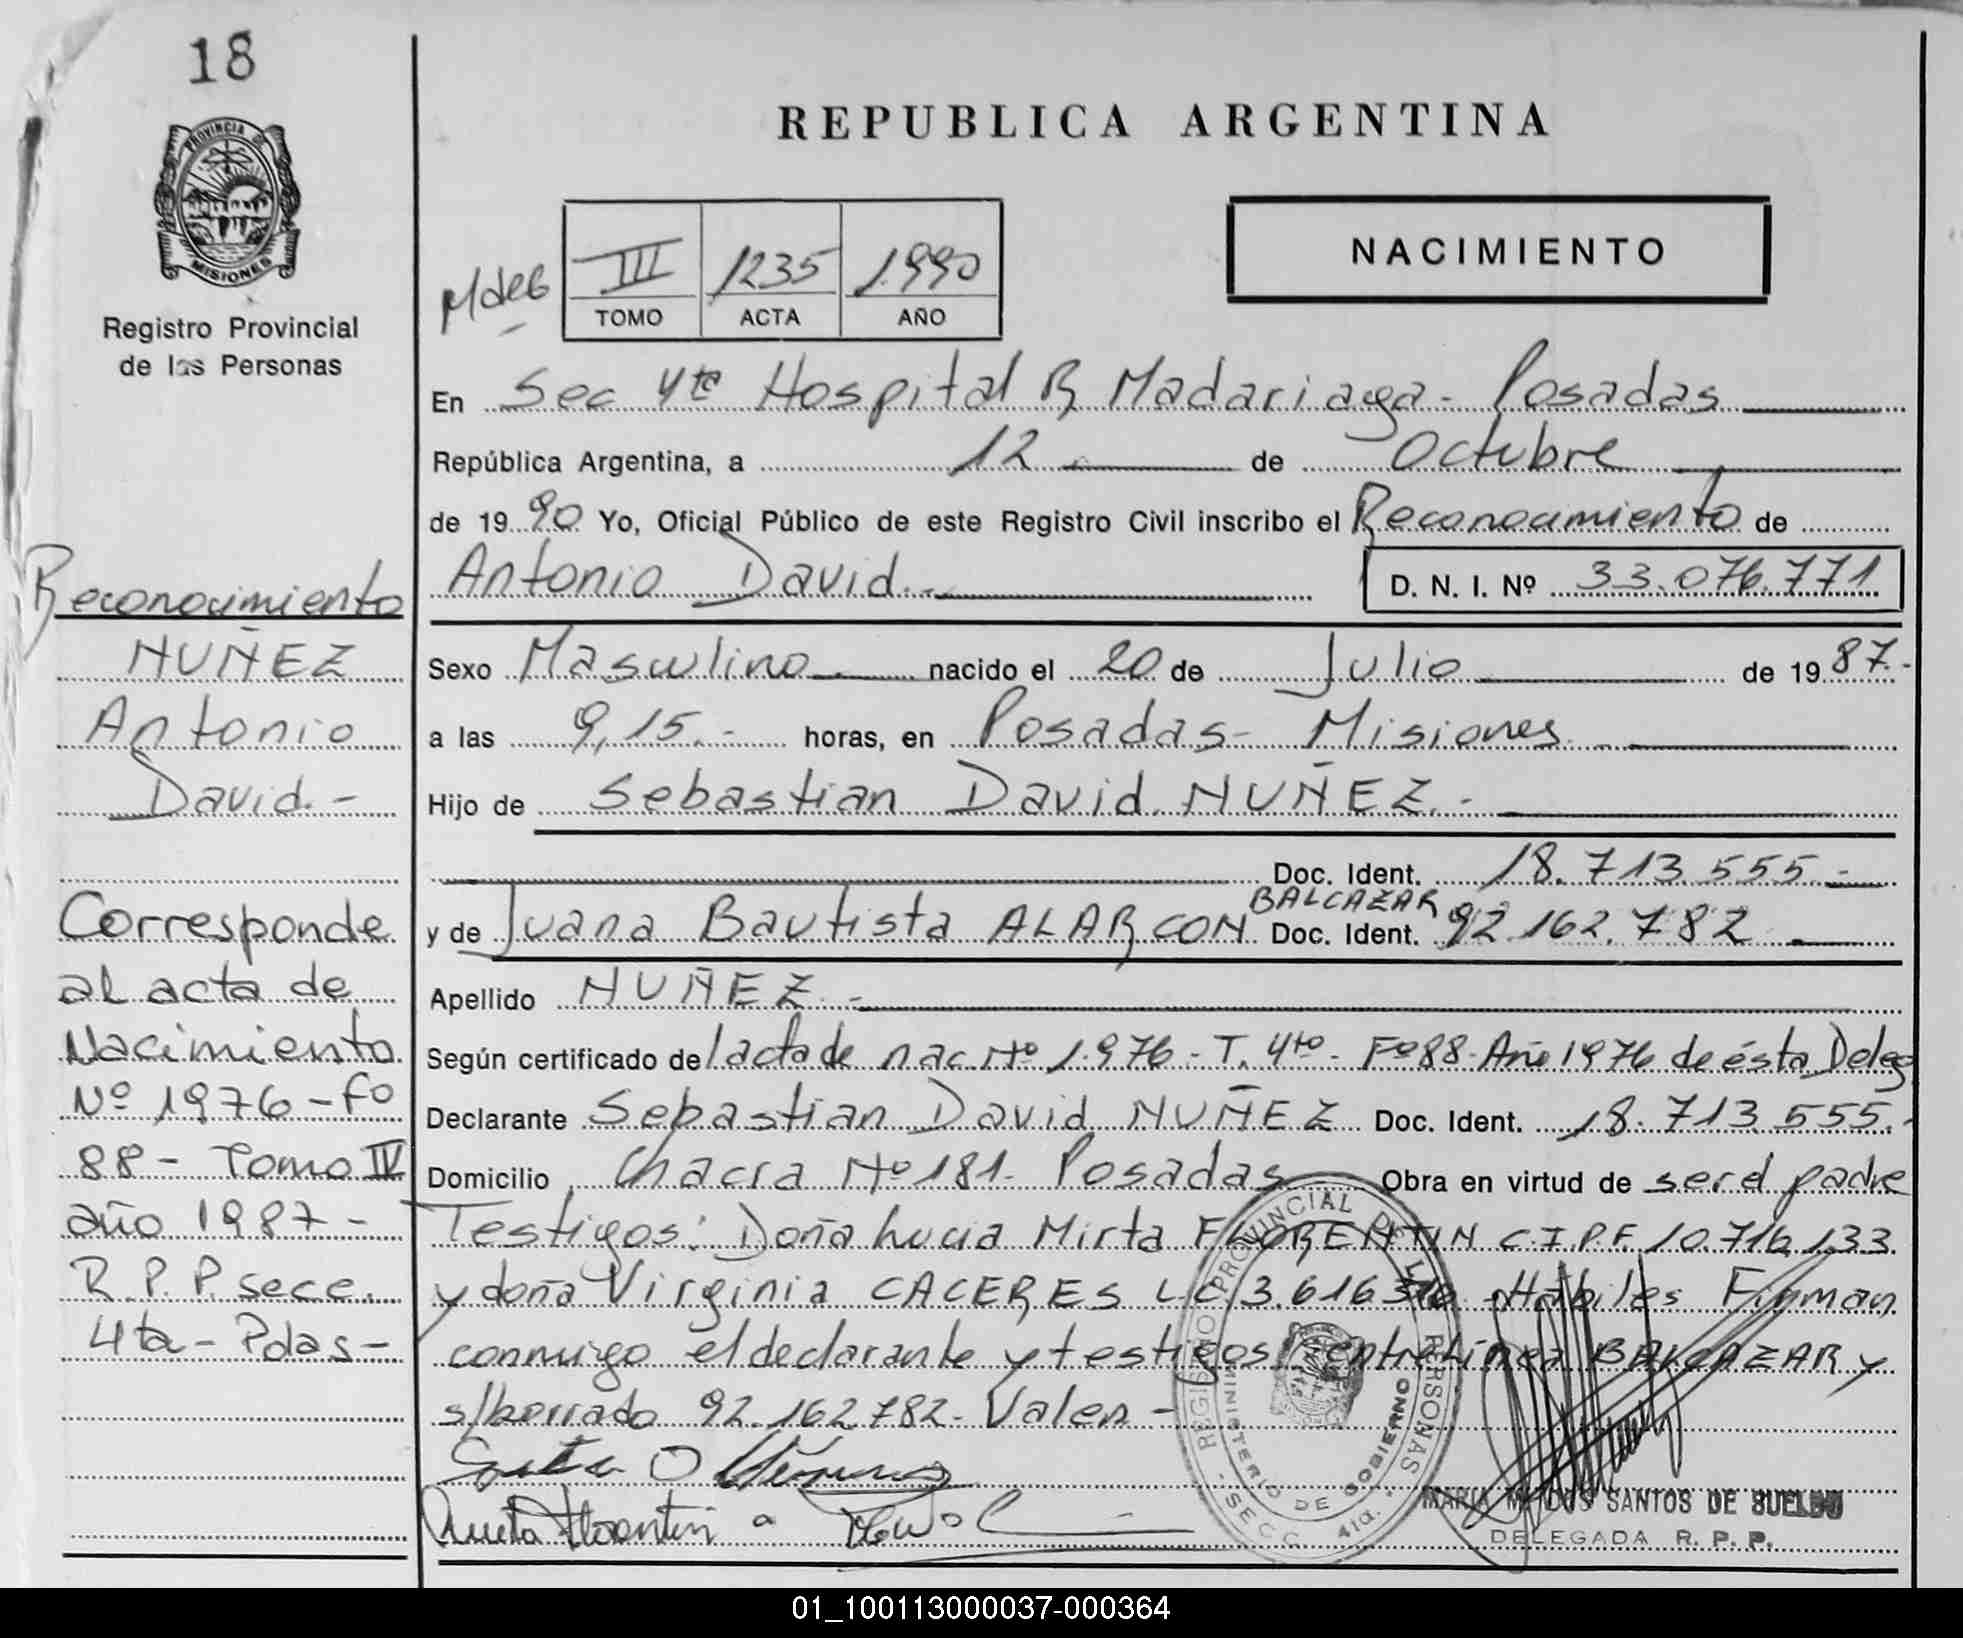 18
PROVINCIA DE
MISIONES
Registro Provincial
de las Personas
REPUBLICA ARGENTINA
NACIMIENTO
III 1235 1990
TOMO ACTA AÑO
En Sec 4ta Hospital R Madariaga - Posadas
República Argentina, a 12 de Octubre
de 1990 Yo, Oficial Público de este Registro Civil inscribo el Reconocimiento de
Antonio David.- D. N. I. Nº 33.076.771
Sexo Masculino nacido el 20 de Julio de 1987.-
a las 9,15.- horas, en Posadas - Misiones
Hijo de Sebastian David NUÑEZ.-
Doc. Ident. 18.713.555.-
BALCAZAR
y de Juana Bautista ALARCON Doc. Ident. 92.162.782
Apellido NUÑEZ.-
Según certificado de l acta de nac. Nº 1.976.- T. 4to- Fº 88- Año 1976 de ésta Deleg
Declarante Sebastian David NUÑEZ Doc. Ident. 18.713.555.-
Domicilio Chacra Nº 181- Posadas Obra en virtud de ser el padre
Testigos: Doña Lucia Mirta FLORENTIN C.I.P.F. 10.716.133
y doña Virginia CACERES L.C. 3.616.316 Hábiles Firman
conmigo el declarante y testigos entrelínea BALCAZAR y
s/borrado 92.162.782- Valen -
Reconocimiento
NUÑEZ
Antonio
David.-
Corresponde
al acta de
Nacimiento
Nº 1976 - fº
88 - Tomo IV
año 1987 -
R.P.P. secc.
4ta - Pdas -
REGISTRO PROVINCIAL DE LAS PERSONAS
MINISTERIO DE GOBIERNO
- SECC. 4ta. -
SANTOS DE SUELDO
DELEGADA R. P. P.
01_100113000037-000364